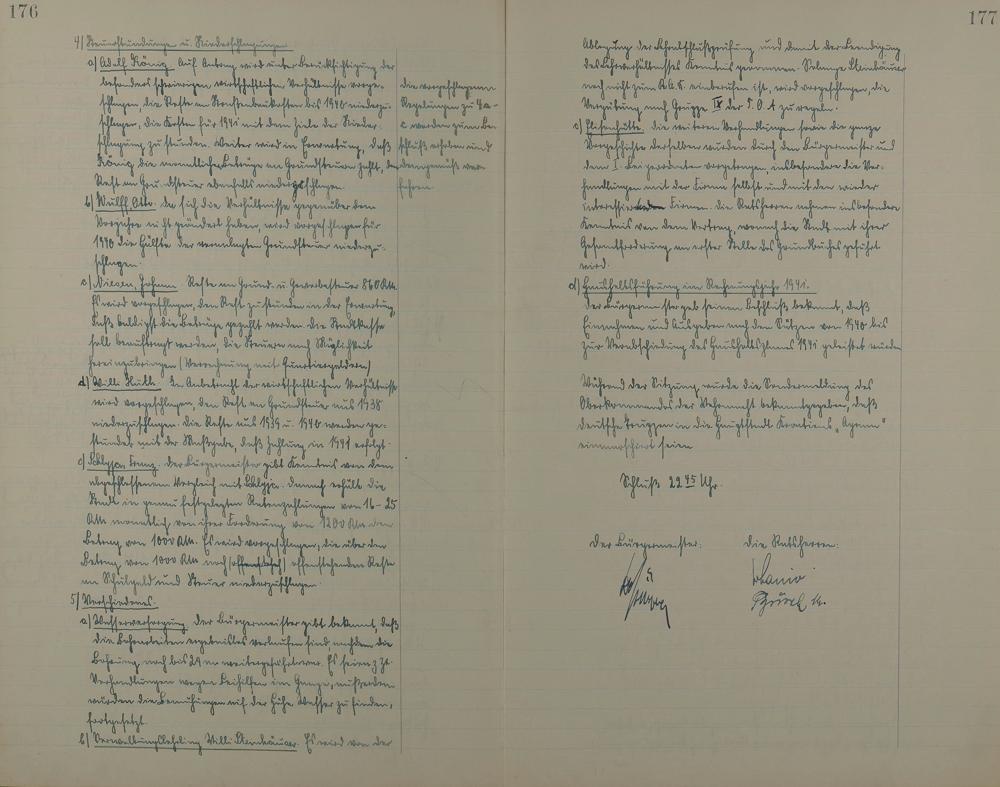 176
4/ Steuerstundungen u. Niederschlagungen.
a/ Adolf König. Auf Antrag wird unter Berücksichtigung der
besonders schwierigen wirtschaftlichen Verhältnisse vorge-
schlagen, die Reste an Straßenbaukosten bis 1940 niederzu-
schlagen, die Kosten für 1941 mit dem Ziele der Nieder-
schlagung zu stunden. Weiter wird in Erwartung, daß
König die monatlichen Beträge an Grundsteuern zahlt, der
Rest an Grundsteuer ebenfalls niedergeschlagen.
b/ Wulff, Otto. Da sich die Verhältnisse gegenüber dem
Vorjahre nicht geändert haben, wird vorgeschlagen für
1940 die Hälfte der veranlagten Grundsteuer niederzu-
schlagen.
c/ Johann. Reste an Grund- u. Gewerbesteuer 860 RM.
Es wird vorgeschlagen, den Rest zu stunden in der Erwartung,
daß baldigst die Beträge gezahlt werden. Die Stadtkasse
soll beauftragt werden, die Steuern nach Möglichkeit
hereinzubringen (Verrechnung mit Quartiergeldern)
d/ Willi Hütte. In Anbetracht der wirtschaftlichen Verhältnisse
wird vorgeschlagen, den Rest an Grundsteuer aus 1938
niederzuschlagen. Die Reste aus 1939 u. 1940 werden ge-
stundet mit der Maßgabe, daß Zahlung in 1941 erfolgt.
e/ Franz. Der Bürgermeister gibt Kenntnis von dem
abgeschlossenen Vergleich mit Danach erhält die
Stadt in genau festgelegten Ratenzahlungen von 16-25
RM monatlich von ihrer Forderung von 1200 RM den
Betrag von 1000 RM. Es wird vorgeschlagen, die über den
Betrag von 1000 RM noch offenstehenden Reste
an Schulgeld und Steuer niederzuschlagen.
5/ Verschiedenes.
a/ Wasserversorgung. Der Bürgermeister gibt bekannt, daß
die Bohrarbeiten ergebnislos verlaufen sind, nachdem die
Bohrung noch bis 29 m weitergeführt war. Es seien z. Zt.
Verhandlungen wegen Beihilfen im Gange, außerdem
würden die Bemühungen auf der Höhe Wasser zu finden,
fortgesetzt.
b/ Verwaltungslehrling Willi Es wird von der
Die vorgeschlagenen
Regelungen zu 4 a-
e werden zum Be-
schluß erhoben und
demgemäß ver-
fahren.
177
Ablegung der Abschlußprüfung und damit der Beendigung
des Lehrverhältnisses Kenntnis genommen. Solange
noch nicht zum R.A.D. einberufen ist, wird vorgeschlagen, die
Vergütung nach Gruppe IX der T.O.A zu regeln.
c/ Die weiteren Verhandlungen sowie die ganze
Vorgeschichte derselben wurden durch den Bürgermeister und
dem I. Beigeordneten vorgetragen, insbesondere die Ver-
handlungen mit der Firma selbst und mit den wieder
interessierten Firmen. Die Ratsherren nehmen insbesondere
Kenntnis von dem Vertrag, wonach die Stadt mit ihrer
Gesamtforderung an erster Stelle des Grundbuches geführt
wird.
d/ Haushaltsführung im Rechnungsjahr 1941.
Der Bürgermeister gab seinen Beschluß bekannt, daß
Einnahmen und Ausgaben nach den Sätzen von 1940 bis
zur Verabschiedung des Haushaltsplanes 1941 geleistet wurden
Während der Sitzung wurde die Sondermeldung des
Oberkommandos der Wehrmacht bekanntgegeben, daß
deutsche Truppen in die Hauptstadt Kroatiens „Agram“
einmarschiert seien.
Schluß 22 45 Uhr.
Der Bürgermeister: Die Ratsherren: